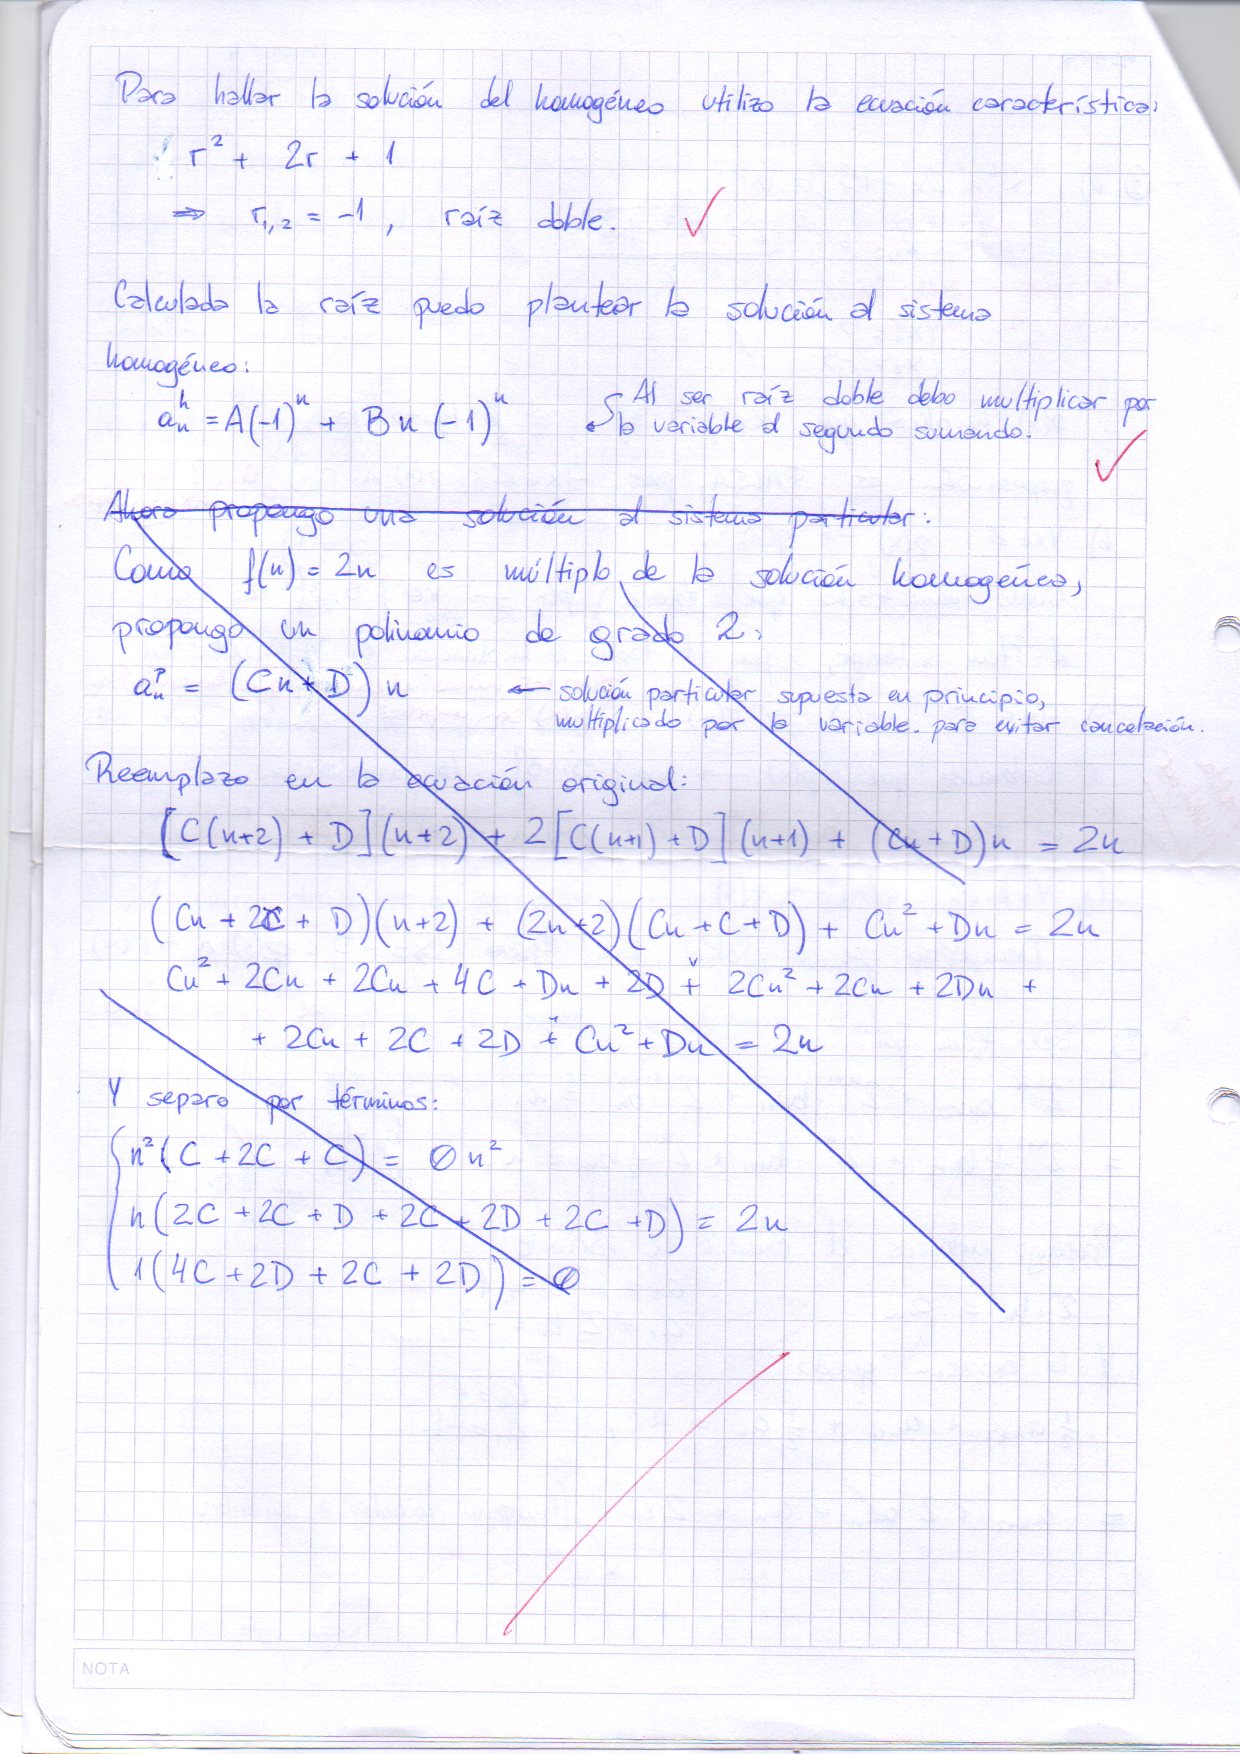 Para hallar la solución del homogéneo utilizo la ecuación característica:
r² + 2r + 1
⇒ r₁,₂ = -1, raíz doble. ✓
Calculada la raíz puedo plantear la solución al sistema
homogéneo:
aₙʰ = A(-1)ⁿ + Bn(-1)ⁿ
Al ser raíz doble debo multiplicar por
la variable al segundo sumando. ✓
Ahora propongo una solución al sistema particular:
Como f(n) = 2n es múltiplo de la solución homogénea,
propongo un polinomio de grado 2:
aₙᵖ = (Cn + D) n
← solución particular supuesta en principio,
multiplicado por la variable. para evitar cancelación.
Reemplazo en la ecuación original:
[C(n+2) + D](n+2) + 2[C(n+1) + D](n+1) + (Cn + D)n = 2n
(Cn + 2C + D)(n+2) + (2n+2)(Cn + C + D) + Cn² + Dn = 2n
Cn² + 2Cn + 2Cn + 4C + Dn + 2D + 2Cn² + 2Cn + 2Dn +
+ 2Cn + 2C + 2D + Cn² + Dn = 2n
Y separo por términos:
n²(C + 2C + C) = 0n²
n(2C + 2C + D + 2C + 2D + 2C + D) = 2n
1(4C + 2D + 2C + 2D) = 0
NOTA